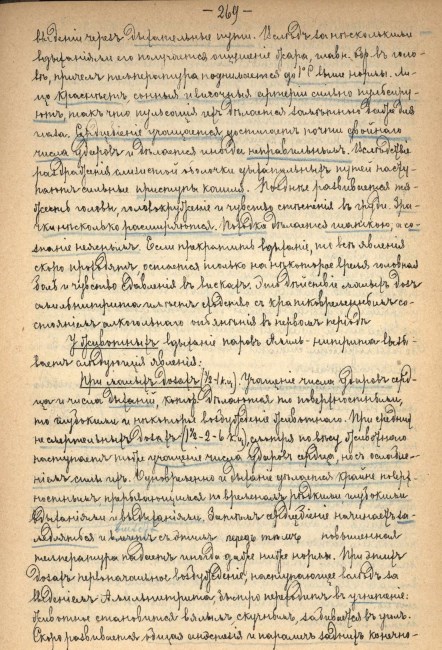 - 269 -
введеніи черезъ дыхательные пути. Вслѣдъ за нѣсколькими
вдыханіями его получается ощущеніе жара, главн. обр. въ голо-
вѣ, причемъ температура поднимается до 1° выше нормы. Ли-
цо краснѣетъ, сонныя и височныя артеріи сильно пульсиру-
ютъ, такъ что пульсація ихъ дѣлается замѣтною даже для
глаза. Сердцебіеніе учащается достигаетъ почти двойнаго
числа ударовъ и дѣлается иногда неправильнымъ. Вслѣдствіе
раздраженія слизистой оболочки дыхательныхъ путей насту-
паютъ сильные приступы кашля. Позднѣе развивается тя-
жесть головы, головокруженіе и чувство стѣсненія въ груди. Зра-
чки нѣсколько расширяются. Походка дѣлается шаткою, а со-
знаніе неяснымъ. Если прекратить вдыханіе, то всѣ явленія
скоро проходятъ остается только на нѣкоторое время головная
боль и чувство давленія въ вискахъ. Это дѣйствіе малыхъ дозъ
амильнитрита имѣетъ сходство съ кратковременнымъ со-
стояніемъ алкогольнаго опьяненія въ первомъ періодѣ
У животныхъ вдыханіе паровъ Амиль-нитрита вызы-
ваетъ слѣдующія явленія:
При малыхъ дозахъ (½-1 к.ц.) Учащеніе числа ударовъ серд-
ца и числа дыханій, котор. дѣлаются то поверхностными,
то глубокими и нѣкоторое возбужденіе животнаго. При среднихъ
не смертельныхъ дозахъ (1½-2-6 к.ц.), смотря по вѣсу животнаго
наступаетъ тоже учащеніе числа ударовъ сердца, но съ ослабле-
ніемъ силы ихъ. Одновременно и дыханіе дѣлается крайне поверх-
ностнымъ прерывающимся по временамъ рѣдкими глубокими
вдыханіями и выдыханіями. Затѣмъ сердцебіеніе начинаетъ за-
медляться и вмѣстѣ съ этимъ передъ тѣмъ повышенная
температура падаетъ иногда даже ниже нормы. При этихъ
дозахъ первоначальное возбужденіе, наступающее вслѣдъ за
введеніемъ Амильнитрита, быстро переходитъ въ угнетеніе:
животное становится вялымъ, скучнымъ, забивается въ уголъ.
Скоро развивается общая анестезія и параличъ заднихъ конечно-